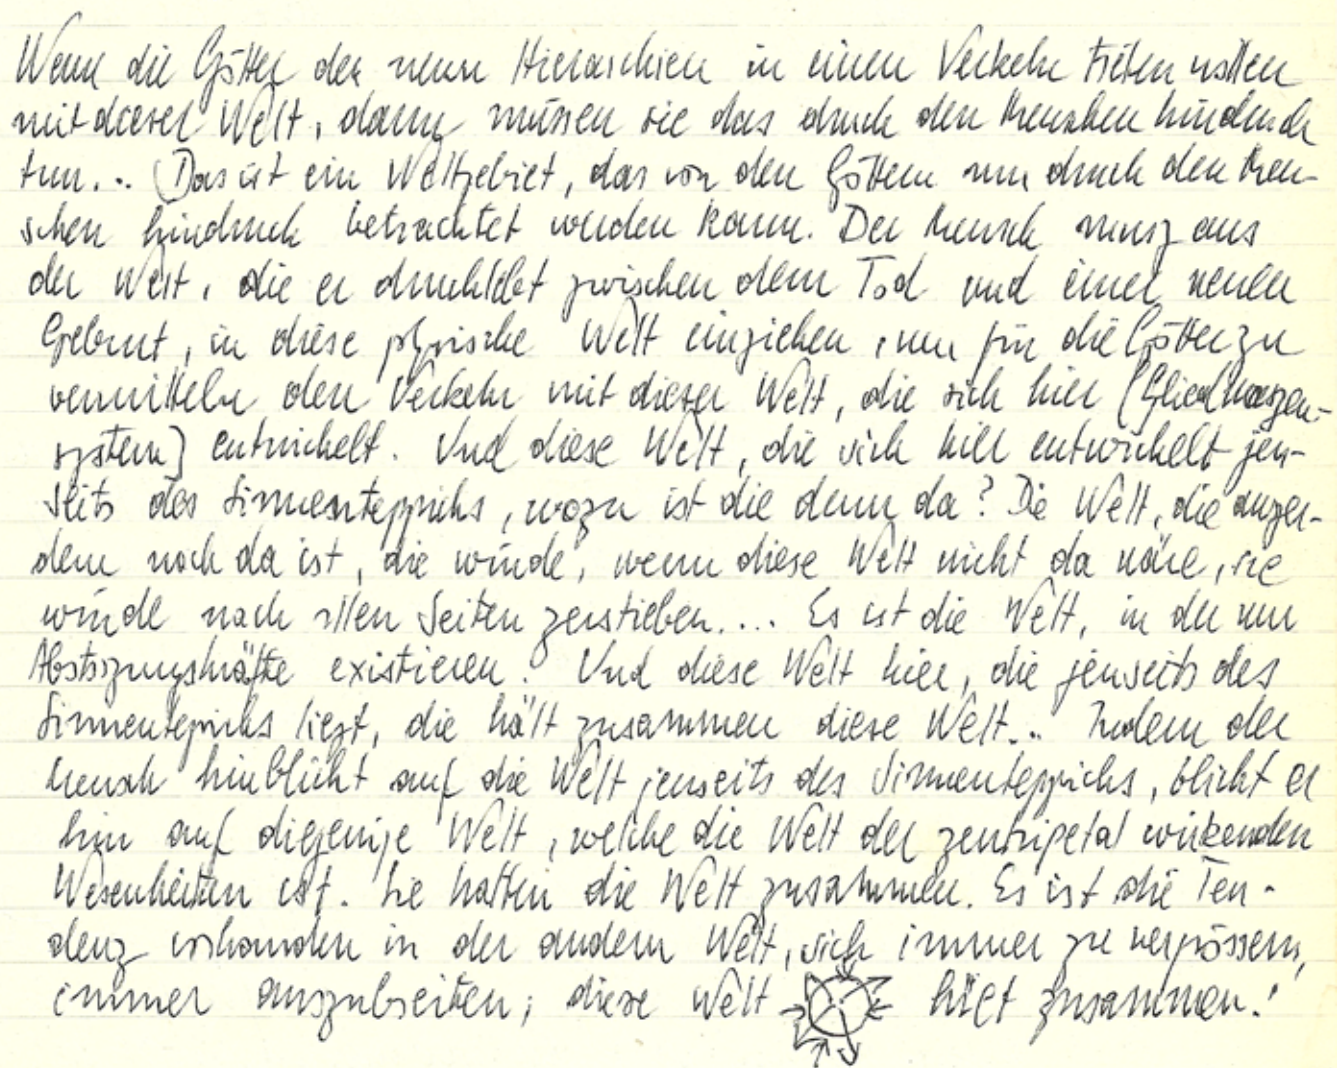 Wenn die Götter der neun Hierarchien in einen Verkehr treten wollen
mit dieser Welt, dann müssen sie das durch den Menschen hindurch
tun... Das ist ein Weltgebiet, das von den Göttern nur durch den Men-
schen hindurch betrachtet werden kann. Der Mensch musz aus
der Welt, die er durchlebt zwischen dem Tod und einer neuen
Geburt, in diese physische Welt einziehen, um für die Götter zu
vermitteln den Verkehr mit dieser Welt, die sich hier (Gliedmaszen-
system) entwickelt. Und diese Welt, die sich hier entwickelt jen-
seits des Sinnesteppichs, wozu ist die denn da? Die Welt, die auszer-
dem noch da ist, die würde, wenn diese Welt nicht da wäre, sie
würde nach allen Seiten zerstieben.... Es ist die Welt, in der nur
Abstoszungskräfte existieren. Und diese Welt hier, die jenseits des
Sinnenteppichs liegt, die hält zusammen diese Welt... Indem der
Mensch hinblickt auf die Welt jenseits des Sinnenteppichs, blickt er
hin auf diejenige Welt, welche die Welt der zentripetal wirkenden
Wesenheiten ist. Sie halten die Welt zusammen. Es ist die Ten-
denz vorhanden in der andern Welt, sich immer zu vergrössern,
immer auszubreiten; diese Welt hält zusammen.!